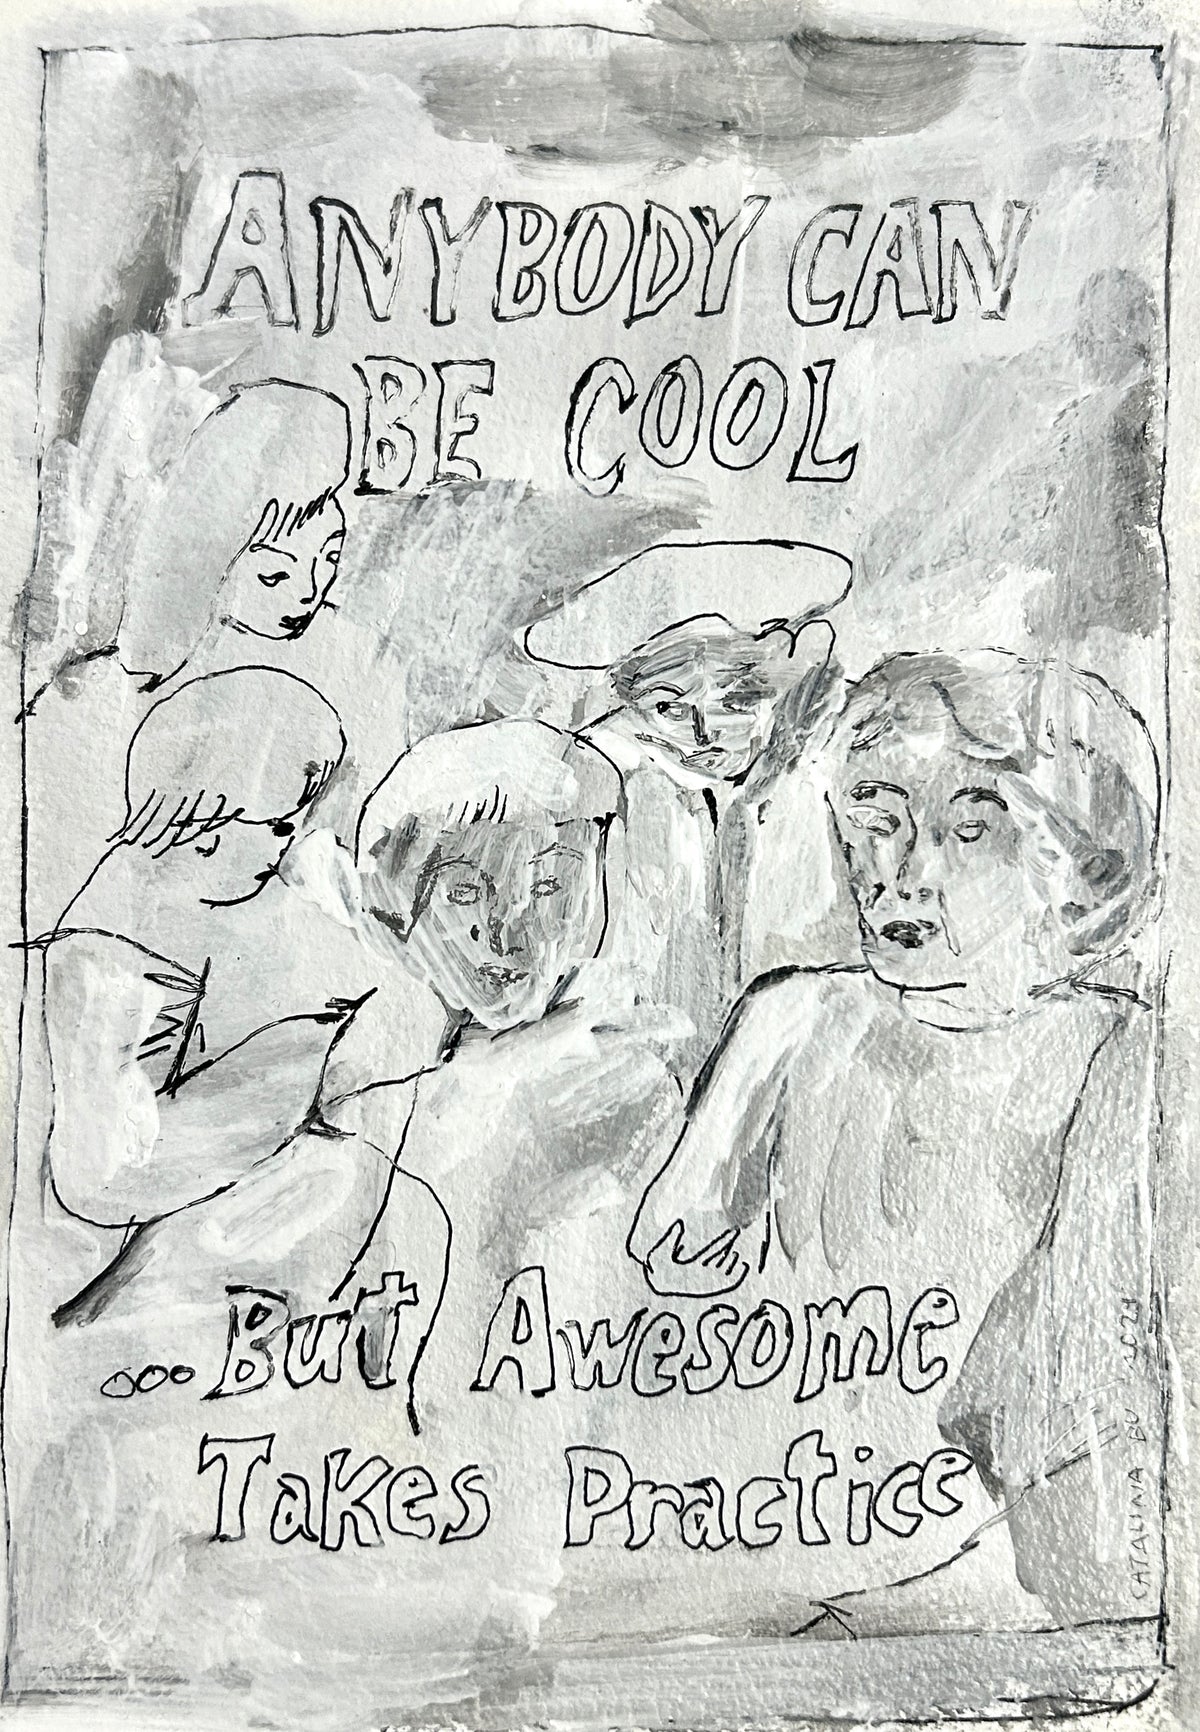 ANYBODY CAN
BE COOL
...But Awesome
Takes Practice
CATALINA BU